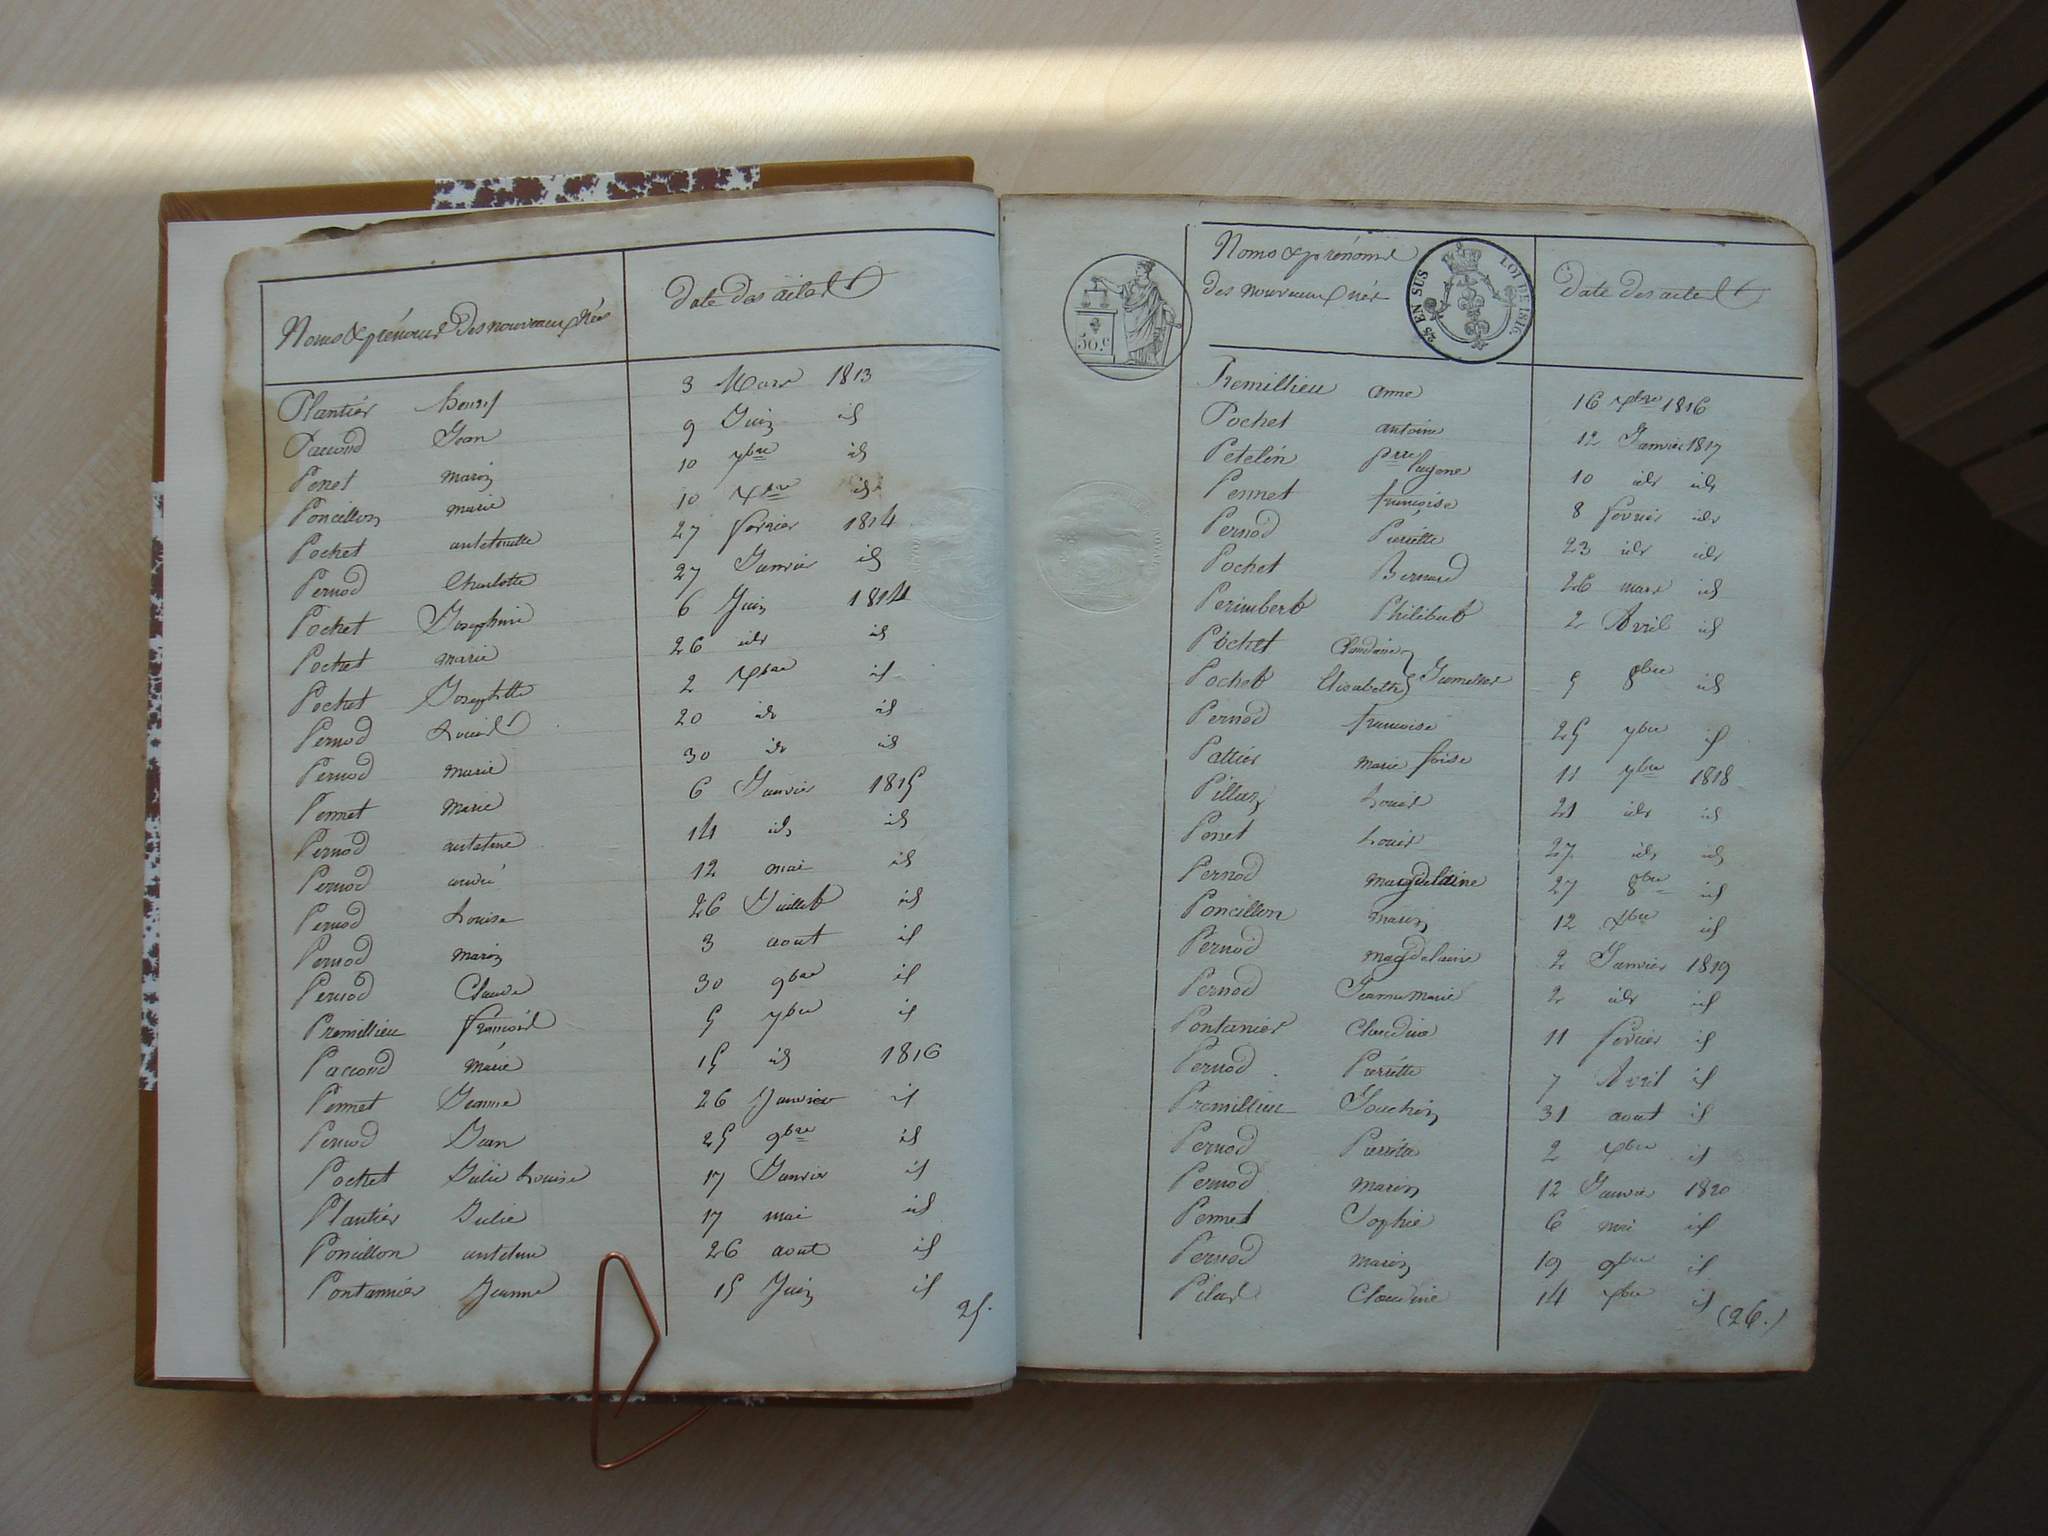 Noms & prénoms des nouveaux nés
date des actes
Plantier 3 Mars 1813
Paccoud Jean 9 Juin id
Penet marin 10 7bre id
Poncillon marie 10 Xbre id
Pochet antelmette 27 fevrier 1814
Pernod Charlotte 27 Janvier id
Pochet Josephine 6 Juin 1814
Pochet marie 26 idr id
Pochet Josephtte 2 Xbre id
Pernod Louis 20 idr id
Pernod marie 30 idr id
Pernet marie 6 Janvier 1815
Pernod antelme 14 id id
Pernod andré 12 mai id
Pernod Louise 26 Juillet id
Pernod marin 3 aout id
Pernod Claude 30 9bre id
Premillieu francois 5 7bre id
Paccoud marie 15 id 1816
Pernet Jeanne 26 Janvier id
Pernod Jean 25 9bre id
Pochet Julie Louise 17 Janvier id
Plantier Julie 17 mai id
Poncillon antelme 26 aout id
Pontannier Jeanne 15 Juin id
25.
50 c
Noms & prénoms
des nouveaux nés
25 EN SUS LOI DE 1816.
date des actes
Premillieu anne 16 Xbre 1816
Pochet antoine 12 Janvier 1817
Petelin Prre Eugene 10 idr idr
Pernet françoise 8 fevrier idr
Pernod Pierrette 23 idr idr
Pochet Bernard 26 mars id
Perimbert Philibert 2 Avril id
Pochet Claudine
Pochet Elisabeth Jumelles 5 8bre id
Pernod francoise 25 7bre id
Pattier marie foise 11 7bre 1818
Louis 21 idr id
Penet Louis 27 idr id
Pernod magdelaine 27 8bre id
Poncillon marin 12 Xbre id
Pernod magdelaine 2 Janvier 1819
Pernod Jeanne marie 2 idr id
Pontanier Claudine 11 fevrier id
Pernod Pierrette 7 Avril id
Premillieu Joachin 31 aout id
Pernod Pierrette 2 Xbre id
Pernod marin 12 Janvier 1820
Pernet Sophie 6 mai id
Pernod marin 19 9bre id
Pilas Claudine 14 Xbre id
(26.)